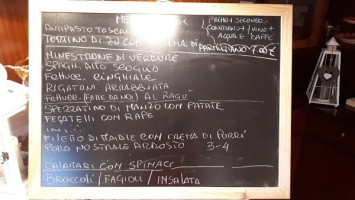 ANTIPASTO TOSCANO
PRIMO + SECONDO
CONTORNO + VINO +
ACQUA E CAFFE
TOMINO DI ZUCCA CREMA DI PARMIGIANO 7.00€
MINESTRONE DI VERDURE
SPAGH. ALLO SCOGLIO
FETTUCC. CINGHIALE
RIGATONI ARRABBIATA
FETTUCC. AL RAGU'
SPEZZATINO DI MANZO CON PATATE
FEGATELLI CON RAPE
FILETTO DI MAIALE CON CREMA DI PORRI
POLLO NOSTRALE ARROSTO 3-4
CALAMARI CON SPINACI
BROCCOLI / FAGIOLI / INSALATA